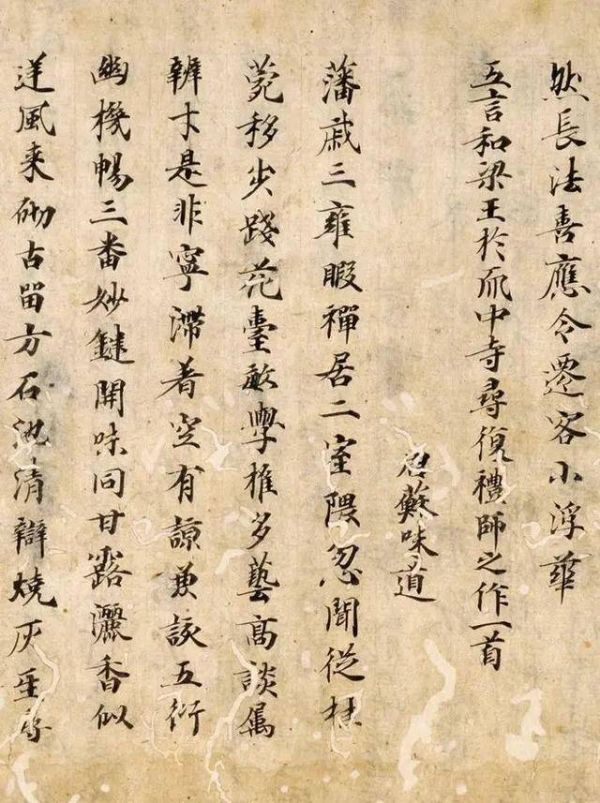 然長法善應令遷客小浮華
五言和梁王於中寺尋復禮師之作一首
蘇味道
藩戚三雍暇禪居二室隈忽聞從桂
菀移步踐花臺敏學推多藝高談屬
辨才是非寧滯著空有諒兼該五衍
幽機暢三番妙鍵開味同甘露灑香似
逆風来砌古留方石池清辯燒灰